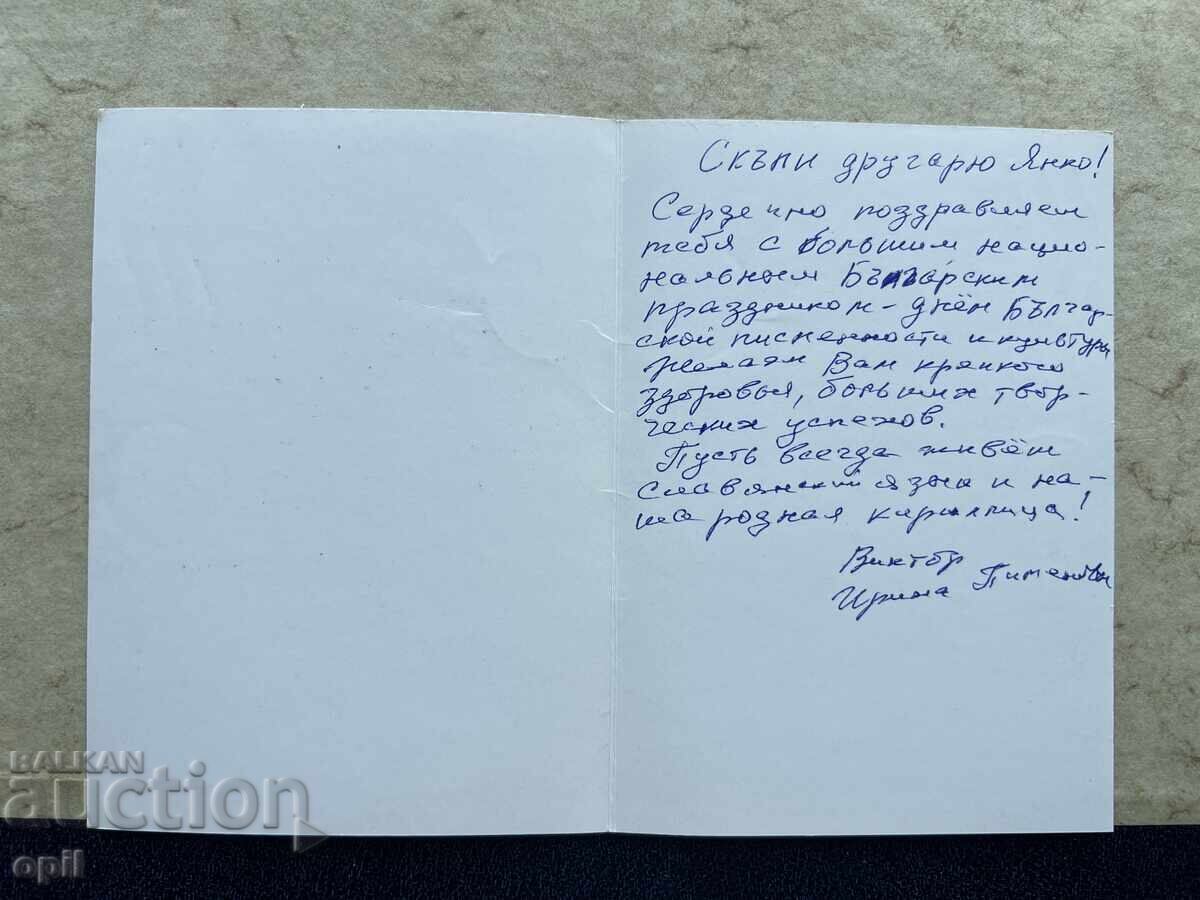 Скъпи другарю Янко!
Сердечно поздравляем
тебя с большим нацио-
нальным Българским
праздником - днём Българ-
ской письменности и культуры
желаем Вам крепкого
здоровья, больших твор-
ческих успехов.
Пусть всегда живёт
славянский язык и на-
ша родная кириллица!
Виктор
Ирина
BALKAN
auction
opil